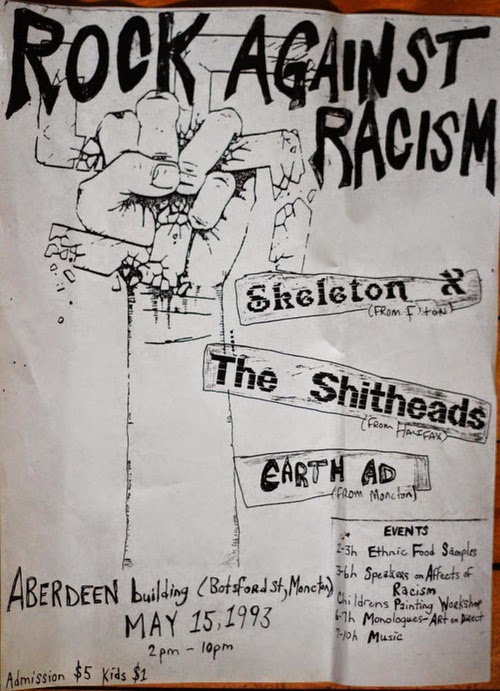 ROCK AGAINST
RACISM
Skeleton X
(FROM F'TON)
The Shitheads
(FROM HALIFAX)
EARTH AD
(FROM MONCTON)
EVENTS
2-3h Ethnic Food Samples
3-6h Speakers on Affects of
Racism
Childrens Painting Workshop
6-7h Monologues-ART on Direct
7-10h Music
ABERDEEN building (Botsford St, Moncton)
MAY 15, 1993
2pm - 10pm
Admission $5 Kids $1